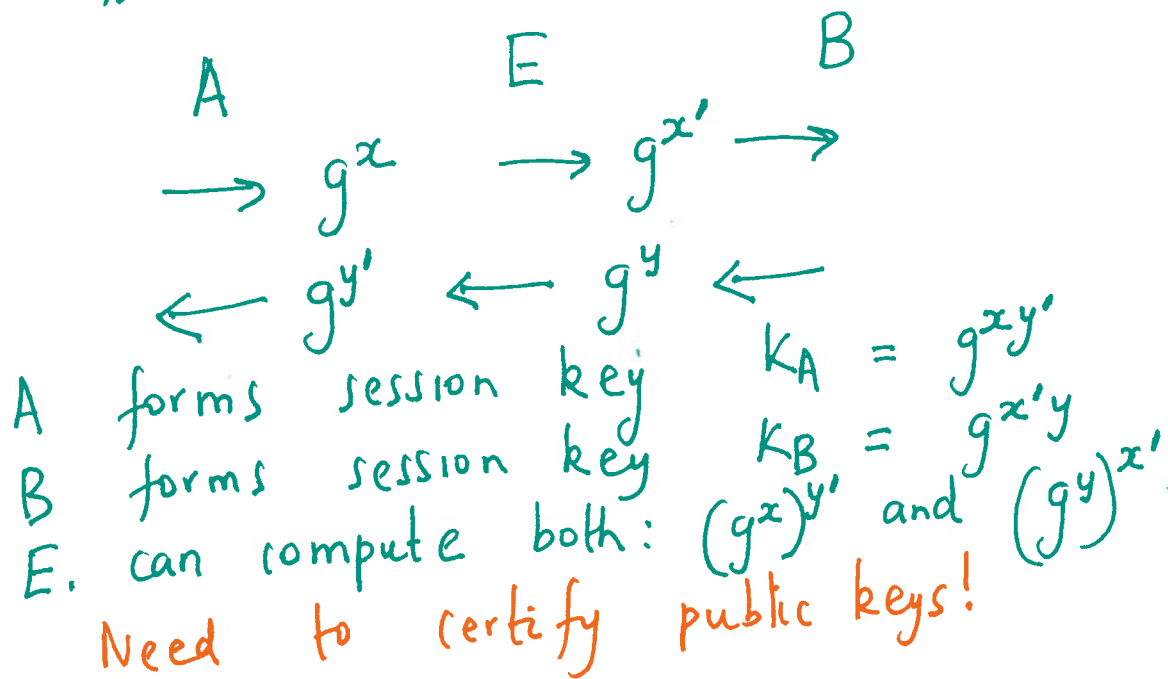 A E B
→ g^x → g^x' →
← g^y' ← g^y ←
A forms session key K_A = g^xy'
B forms session key K_B = g^x'y
E. can compute both: (g^x)^y' and (g^y)^x'
Need to certify public keys!